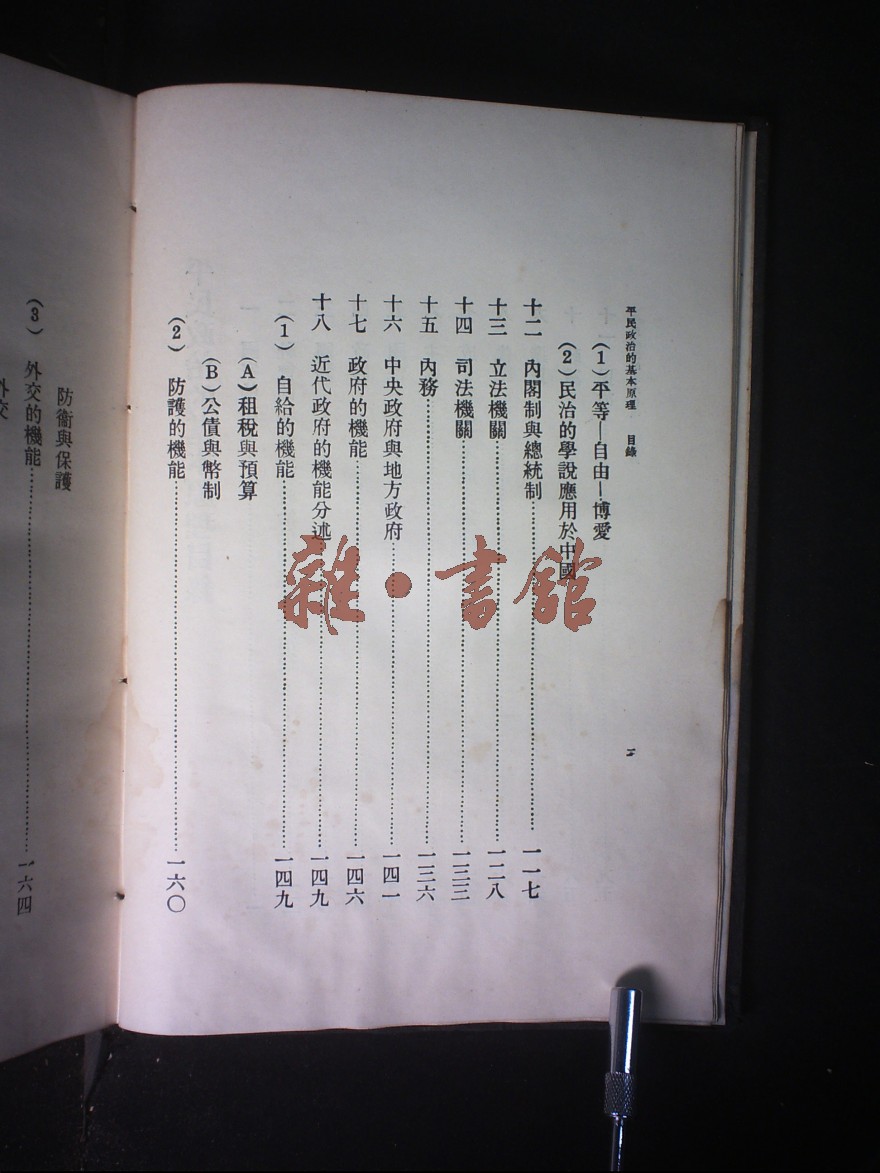 平民政治的基本原理 目錄
二
(1)平等—自由—博愛
(2)民治的學說應用於中國
十二 內閣制與總統制……一一七
十三 立法機關……一二八
十四 司法機關……一三三
十五 內務……一三六
十六 中央政府與地方政府……一四一
十七 政府的機能……一四六
十八 近代政府的機能分述……一四九
(1) 自給的機能……一四九
(A)租稅與預算
(B)公債與幣制
(2) 防護的機能……一六〇
防衞與保護
(3) 外交的機能……一六四
外交
雜·書館